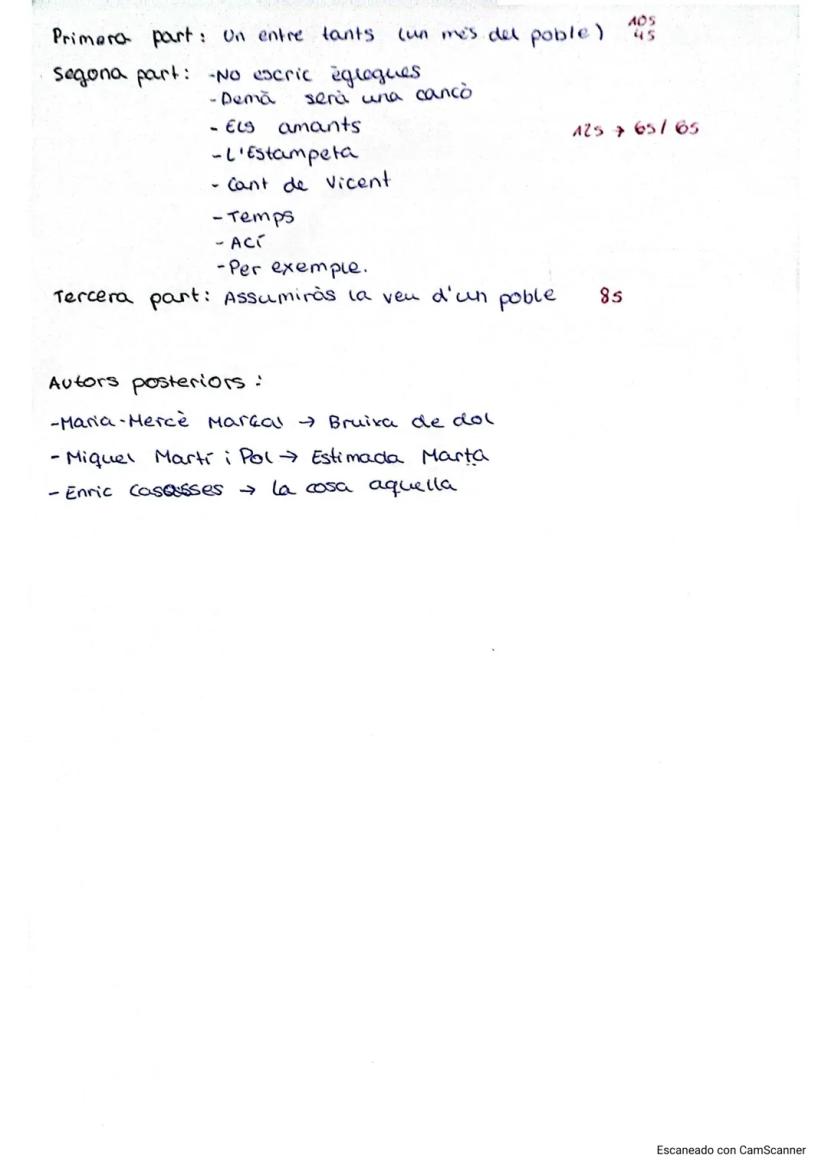 Primera part: Un entre tants (un més del poble) 10s
4s
Segona part: -No escric èglogues
-Demà serà una cancò
- Els amants 12s → 6s / 6s
-L'Estampeta
- Cant de Vicent
-Temps
- Ací
-Per exemple.
Tercera part: Assumiràs la veu d'un poble 8s
Autors posteriors :
-Maria-Mercè Marçal → Bruixa de dol
- Miquel Martí i Pol → Estimada Marta
- Enric Casasses → La cosa aquella
Escaneado con CamScanner